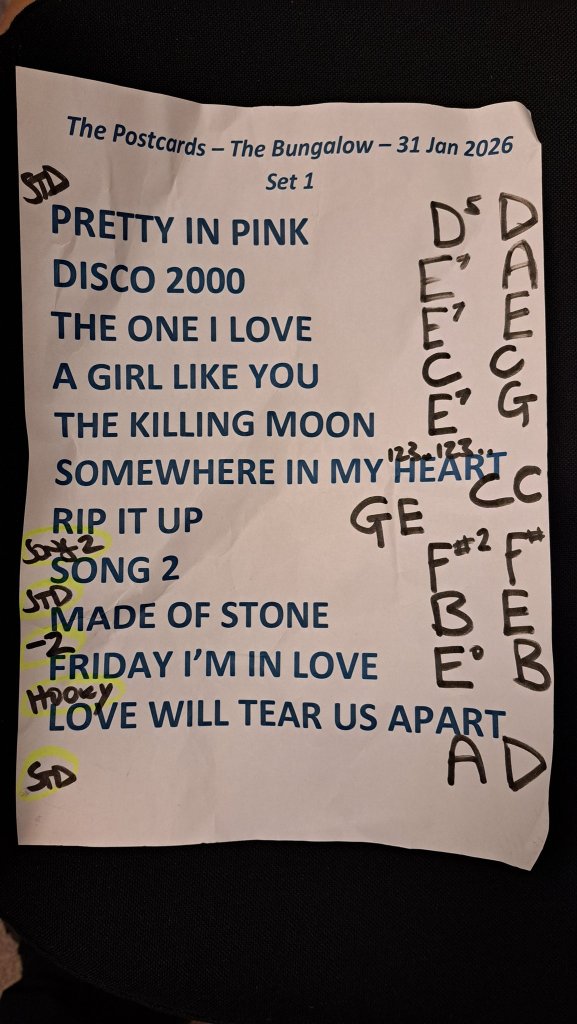 The Postcards – The Bungalow – 31 Jan 2026
Set 1
STD
PRETTY IN PINK D5 D
DISCO 2000 E7 A
THE ONE I LOVE E7 E
A GIRL LIKE YOU C C
THE KILLING MOON E7 G
123.. 123..
SOMEWHERE IN MY HEART C C
RIP IT UP G E
SONG 2
SONG 2 F#2 F#
STD
MADE OF STONE B E
-2
FRIDAY I'M IN LOVE E0 B
HOOKY
LOVE WILL TEAR US APART A D
STD